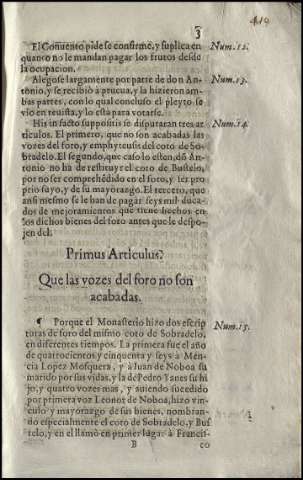 3
El Conuento pide se confirme, y suplica en
quanto no le mandan pagar los frutos desde
la ocupacion.
Num. 12.
Alegose largamente por parte de don An-
tonio, y se recibiò a prueua, y la hizieron am-
bas partes, con lo qual concluso el pleyto se
viò en reuista, y lo està para votarse.
Num. 13.
His in facto suppositis se disputaran tres ar-
ticulos. El primero, que no son acabadas las
vozes del foro, y emphyteusis del coto de So-
bradelo. El segundo, que caso lo esten, dõ An-
tonio no ha de restituyr el coto de Bustelo,
por no ser comprehẽdido en el foro, y ser pro
prio suyo, y de su mayorazgo. El tercero, que
ansi mesmo se le han de pagar seys mil duca-
dos de mejoramientos que tiene hechos en
los dichos bienes del foro antes que le despo-
jen del.
Num. 14.
Primus Articulus?
Que las vozes del foro no son
acabadas.
¶ Porque el Monasterio hizo dos escrip
turas de foro del mismo coto de Sobradelo,
en diferentes tiempos. La primera fue el año
de quatrocientos y cinquenta y seys à Men-
cia Lopez Mosquera, y à Iuan de Noboa su
marido por sus vidas, y la de Pedro Yanes su hi
jo, y quatro vozes mas, y auiendo sucedido
por primera voz Leonor de Noboa, hizo vin-
culo y mayorazgo de sus bienes, nombran-
do especialmente el coto de Sobradelo, y Bus
telo, y en el llamò en primer lugar à Francis-
Num. 15.
B
co